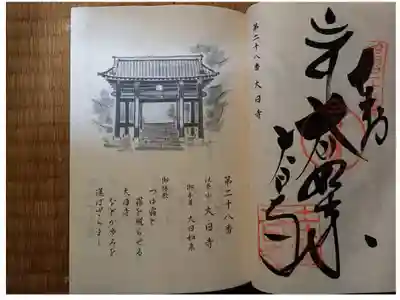 奉納
大日如来
大日寺
第二十八番 大日寺
第二十八番
法界山 大日寺
御本尊 大日如来
御詠歌
つゆ霜と
罪を照らせる
大日寺
などか歩みを
運ばざらまし